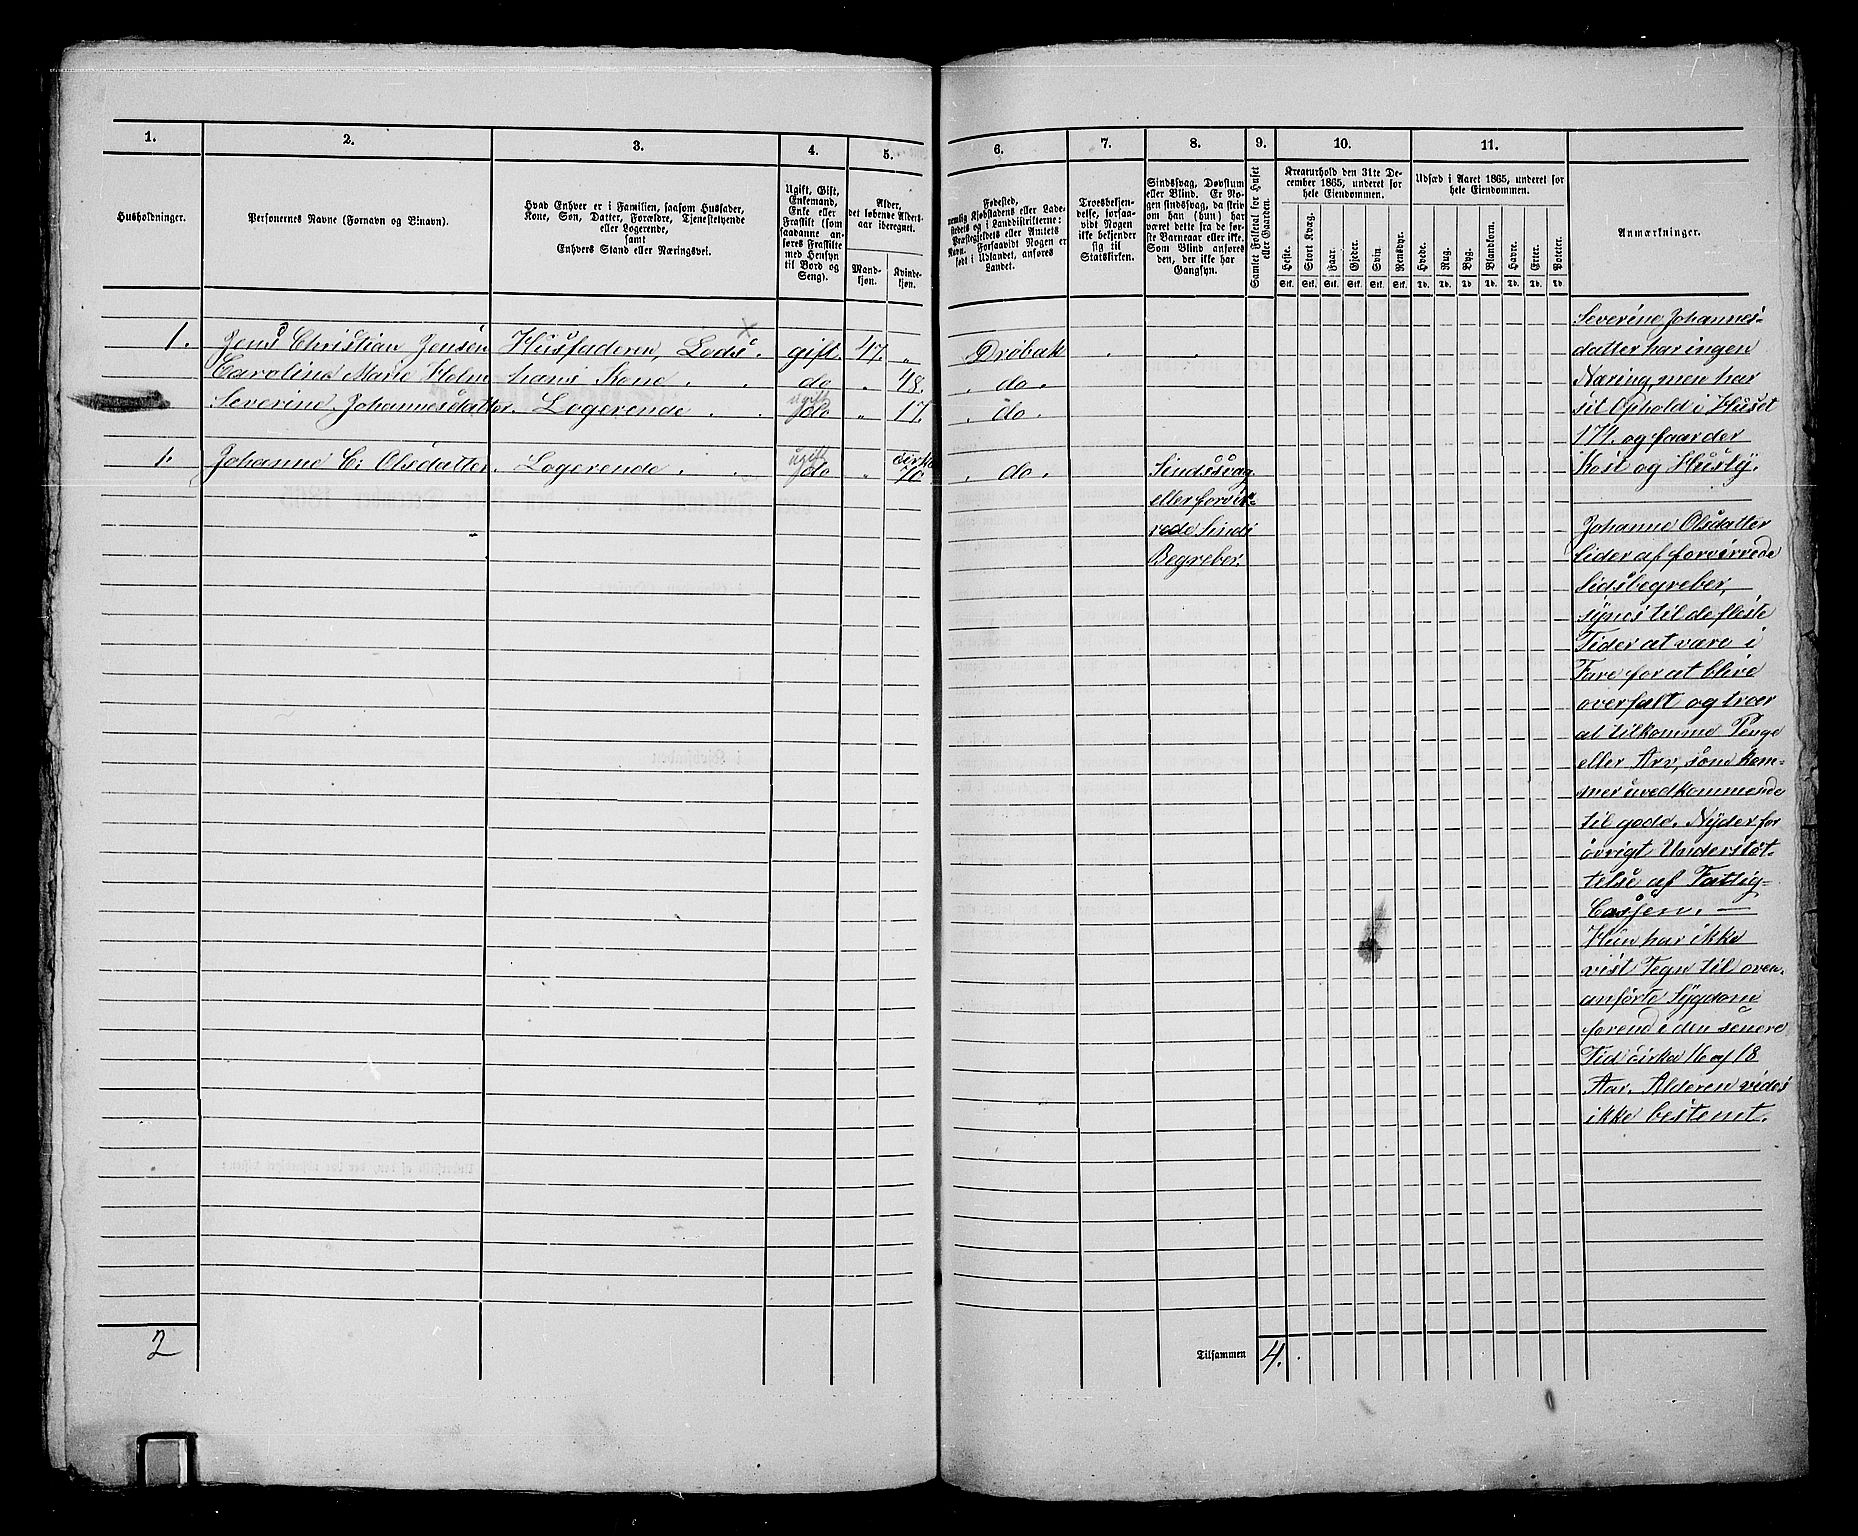 1. 2. 3. 4. 5. 6. 7. 8. 9. 10. 11.
Husholdninger.
Personernes Navne (Fornavn og Binavn).
Hvad Enhver er i Familien, saasom Husfader,
Kone, Søn, Datter, Forældre, Tjenestetyende
eller Logerende,
samt
Enhvers Stand eller Næringsvei.
Ugift, Gift,
Enkemand,
Enke eller
Fraskilt (som
saadanne an-
føres Fraskilte
med Hensyn
til Bord og
Seng).
Alder,
det løbende Alders-
aar iberegnet.
Mand-
kjøn.
Kvinde-
kjøn.
Fødested,
nemlig Kjøbstadens eller Lade-
stedets og i Landdistrikterne:
Præstegjeldets eller Amtets
Navn. Forsaavidt Nogen er
født i Udlandet, anføres
Landet.
Troesbekjen-
delse, forsaa-
vidt Nogen
ikke bekjender
sig til
Statskirken.
Sindssvag, Døvstum
eller Blind. Er No-
gen sindssvag, da skriv
om han (hun) har
været dette fra de før-
ste Barneaar eller ikke.
Som Blind anføres
den, der ikke har
Gangsyn.
Samlet Folketal for Huset
eller Gaarden.
Kreaturhold den 31te De-
cember 1865, underet for
hele Eiendommen.
Heste. Stort Kvæg. Faar. Gjeder. Svin. Rensdyr.
Stk. Stk. Stk. Stk. Stk. Stk.
Udsæd i Aaret 1865, underet for
hele Eiendommen.
Hvede. Rug. Byg. Blandkorn. Havre. Erter. Poteter.
Td. Td. Td. Td. Td. Td. Td.
Anmærkninger.
1. Jens Christian Jensen Husfaderen, Lods. gift. 47. „ Drøbak
Caroline Marie Holm hans Kone. do „ 48. do.
Severine Johannesdatter. Logerende. ugift do „ 17. do.
1. Johanne C: Olsdatter. Logerende. ugift do „ cirka 70. do. Sindssvag
eller forvir-
rede Sinds
Begreber.
Severine Johannes-
datter har ingen
Næring, men har
sit Ophold i Huset
174. og faar der
Kost og Husly.
Johanne Olsdatter
lider af forvirrede
Sidsbegreber,
synes til de fleste
Tider at være i
Fare for at blive
overfalt og troer
at tilkomme Penge
eller Arv, som kom-
mer uvedkommende
til gode. Nyder for
øvrigt Understøt-
telse af Fattig-
Cassen. —
Hun har ikke
vist Tegn til oven-
anførte Sygdom
førend i den senere
Tid cirka 16 af 18
Aar. Alderen vides
ikke bestemt.
2
Tilsammen 4.